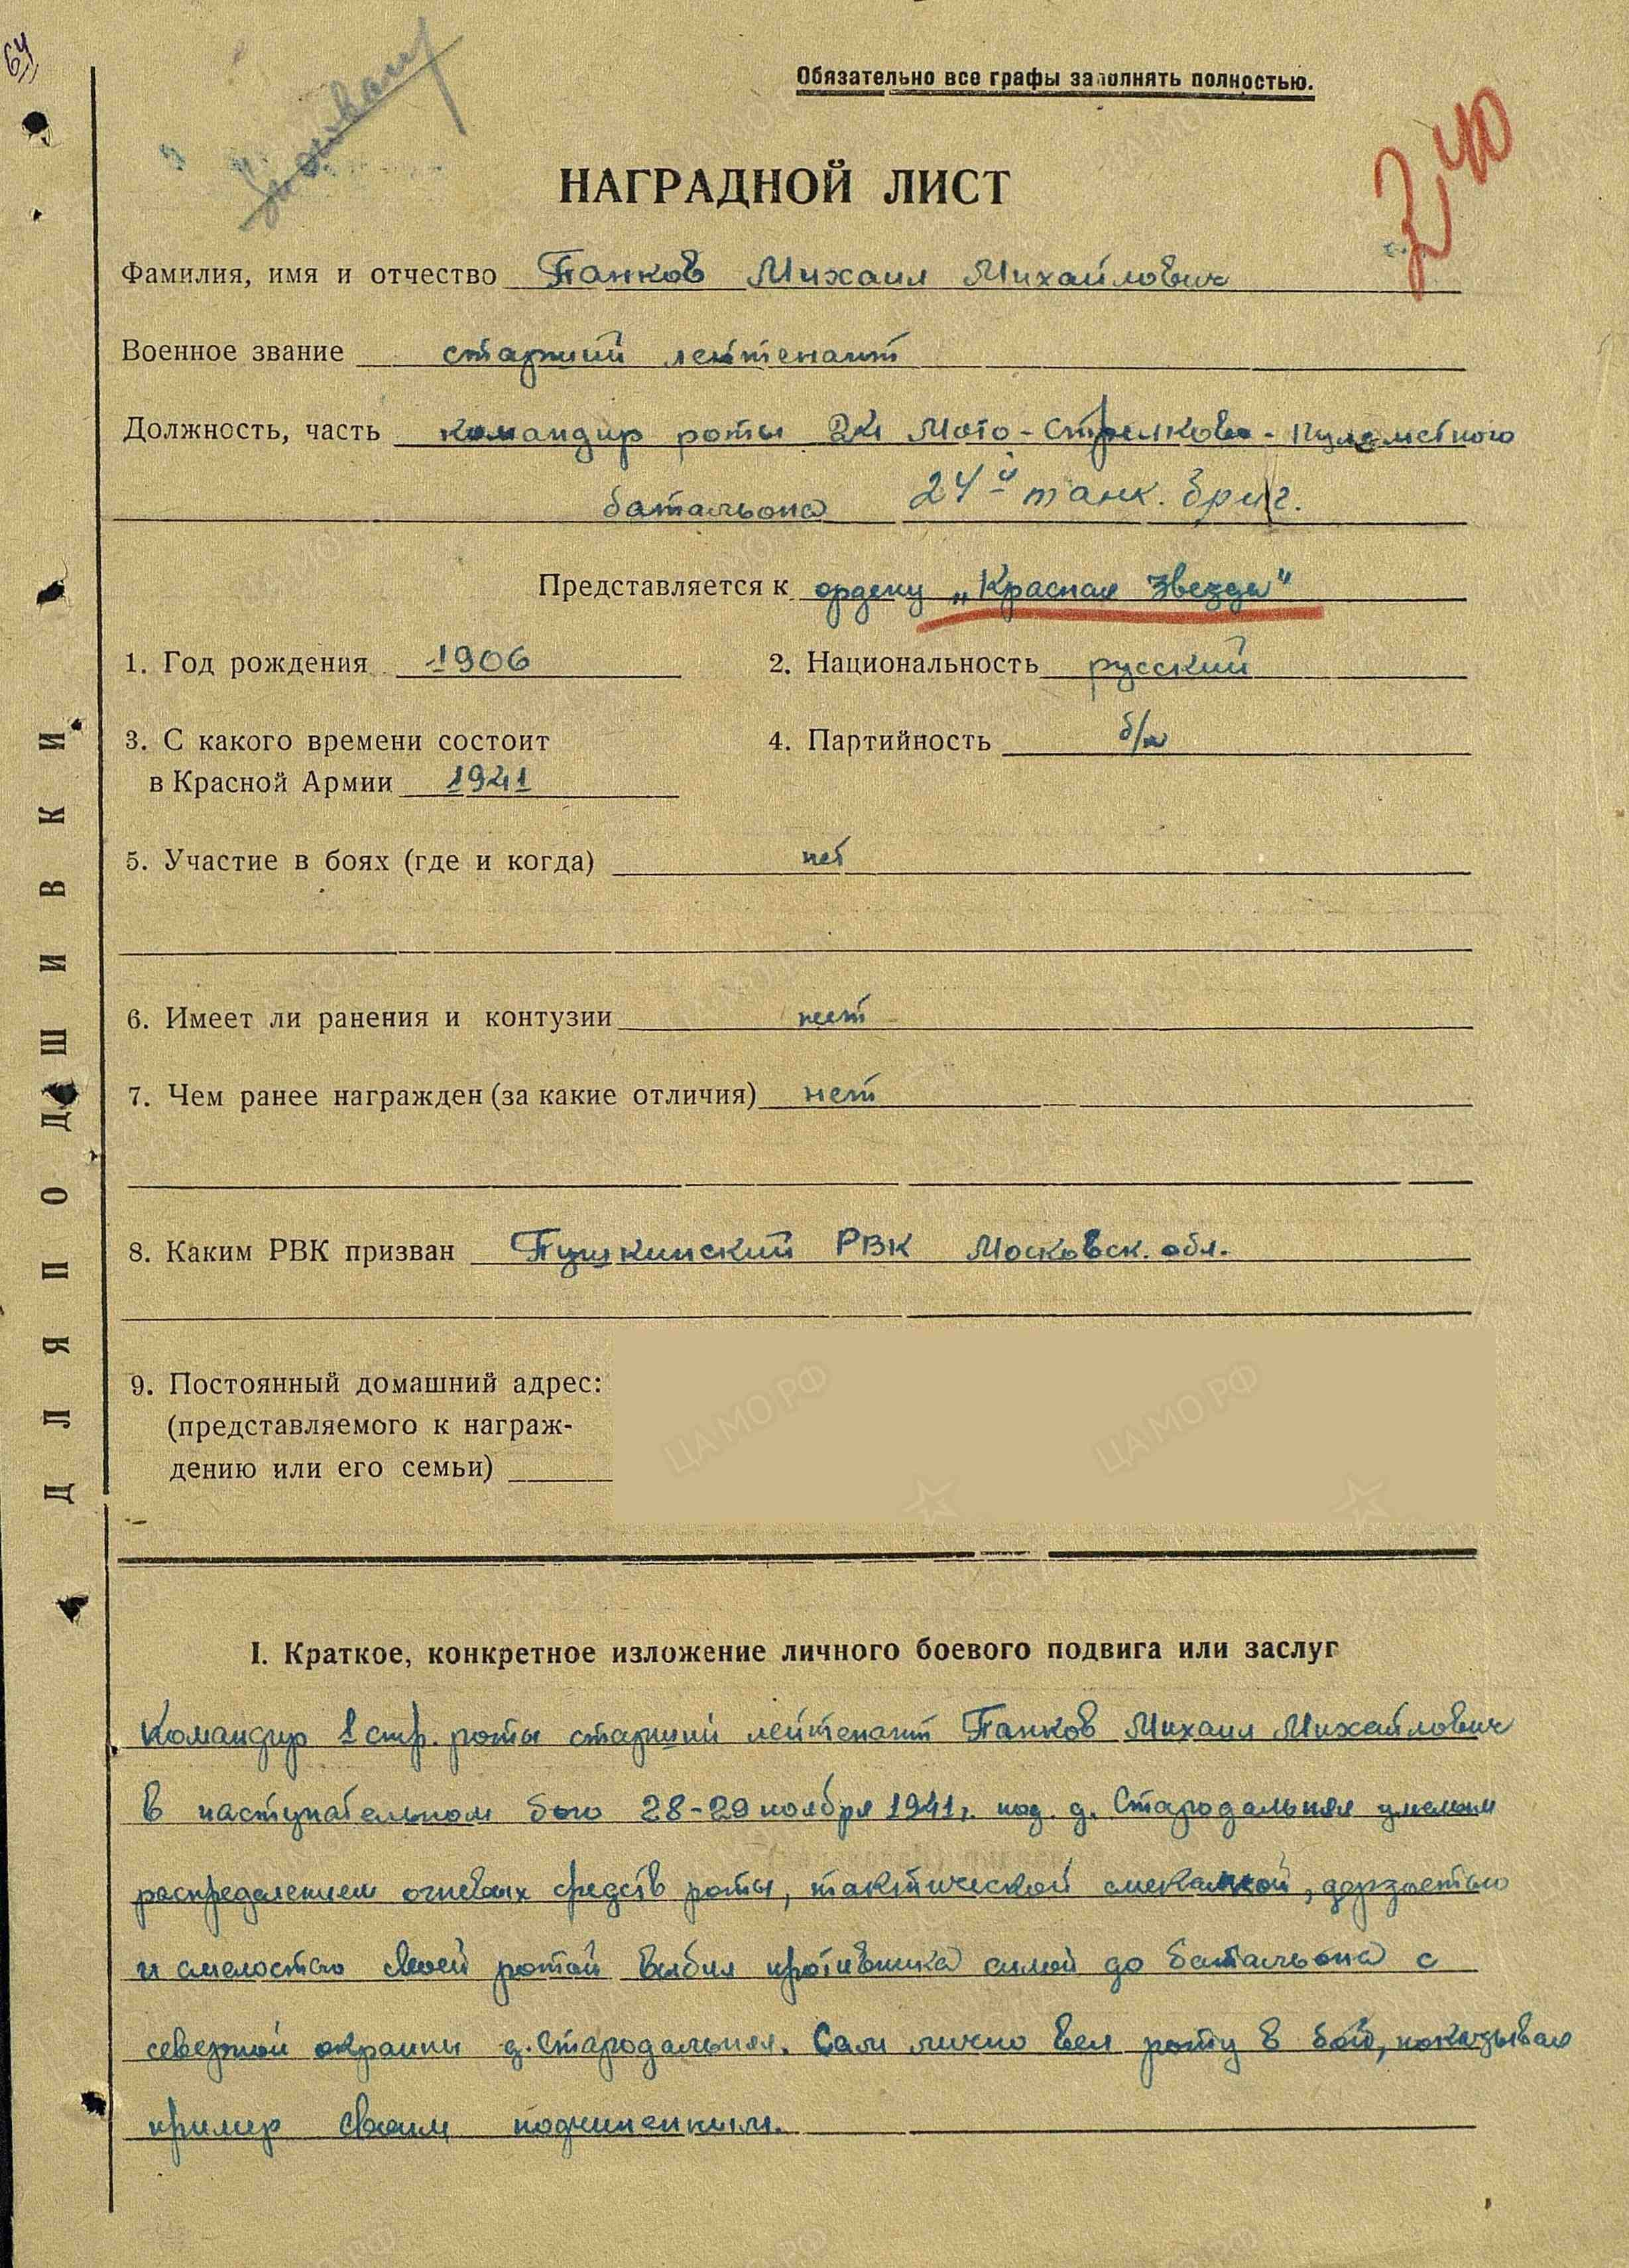 64
Обязательно все графы заполнять полностью.
240
НАГРАДНОЙ ЛИСТ
Фамилия, имя и отчество Панков Михаил Михайлович
Военное звание старший лейтенант
Должность, часть командир роты Мото-Стрелково-Пулеметного
батальона 24й танк. бриг.
Представляется к ордену „Красная Звезда"
1. Год рождения 1906
2. Национальность русский
3. С какого времени состоит
в Красной Армии 1941
4. Партийность б/п
5. Участие в боях (где и когда) нет
6. Имеет ли ранения и контузии нет
7. Чем ранее награжден (за какие отличия) нет
8. Каким РВК призван Пушкинский РВК Московск. обл.
9. Постоянный домашний адрес:
(представляемого к награж-
дению или его семьи)
ДЛЯ ПОДШИВКИ
I. Краткое, конкретное изложение личного боевого подвига или заслуг
Командир 1 стр. роты старший лейтенант Панков Михаил Михайлович
в наступательном бою 28-29 ноября 1941г. под. д. Стародальняя умелым
распределением огневых средств роты, тактической смекалкой, дерзостью
и смелостью своей ротой выбил противника силой до батальона с
северной окраины д. Стародальняя. Сам лично вел роту в бой, показывая
пример своим подчиненным.
ЦАМО РФ